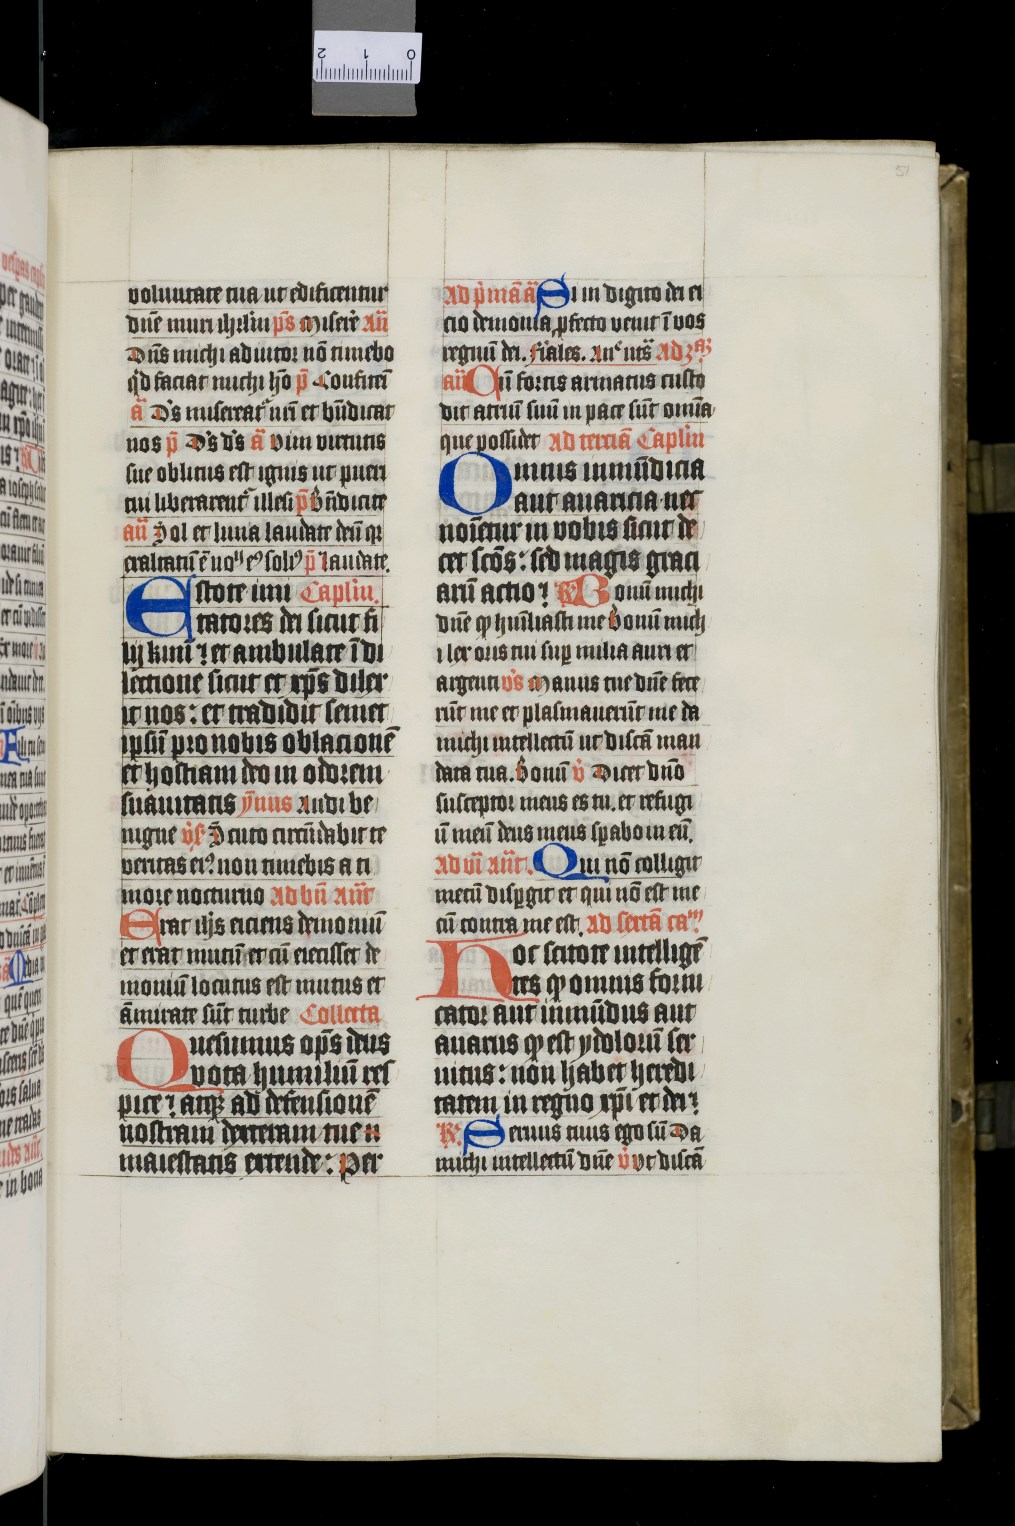 voluntate tua ut edificentur
dn̄e muri ihrl̄m ps̄ Miserē an̄
Dn̄s michi adiutor nō timebo
qd̄ faciat michi hō p̄ Confitem̄
ā Ds̄ misereat᷑ nr̄i et bn̄dicat
nos p̄ Ds̄ ds̄ ā vim virtutis
sue oblitus est ignis ut pueri
tui liberarent᷑ illesi p̄ Bn̄dicite
an̄ Sol et luna laudate deū qr
exaltatū ē no᷑ eꝰ soliꝰ p̄ Laudate
Estote imi Caplm̄.
tatores dei sicut fi
lij kmi ⁊ et ambulate ī di
lectione sicut et xps̄ dilex
it nos: et tradidit semet
ipsū pro nobis oblacionē
et hostiam deo in odorem
suauitatis ymus Audi be
nigne vs̄ Scuto circūdabit te
veritas eiꝰ non timebis a ti
more nocturno Ad bn̄ Ant̄
Erat ihs̄ eiciens demoniū
et erat mutū et cū eiecisset de
moniū locutus est mutus et
āmirate sūt turbe Collecta
Quesumus ops̄ deus
vota humiliū res
pice ⁊ atqꝫ ad defensionē
nostram dexteram tue
maiestatis extende: Per
Ad p̄mā ā Si in digito dei ei
cio demonia profecto venit ī vos
regnū dei. Fiales. Anᶜ nts̄ Ad 3ᵃᵐ
an̄ Cū fortis armatus custo
dit atriū suū in pace sūt omia
que possidet Ad terciā Caplm̄
Omnis inmūdicia
aut auaricia nec
noīetur in vobis sicut de
cet scōs: sed magis graci
arū actio ⁊ R̄ Bonū michi
dn̄e ꝙ humīliasti me Bonū mich
i lex oris tui suꝑ milia auri et
argenti vs̄ Manus tue dn̄e fece
rūt me et plasmauerūt me da
michi intellectū ut discā man
data tua. Bonū v̄ Dicet dn̄o
susceptor meus es tu. et refugi
ū meū deus meus sꝑabo in eū.
Ad vī Ant̄. Qui nō colligit
mecū disꝑgit et qui nō est me
cū contra me est. Ad sextā caᵐ
Hoc scitote intelligē
tes ꝙ omnis forni
cator aut inmūdus aut
auarus ꝙ est ydolorū ser
uitus: non habet heredi
tatem in regno xpī et dei ⁊
R̄. Seruus tuus ego sū Da
michi intellectū dn̄e v̄ Vt discā
51
0 1 2